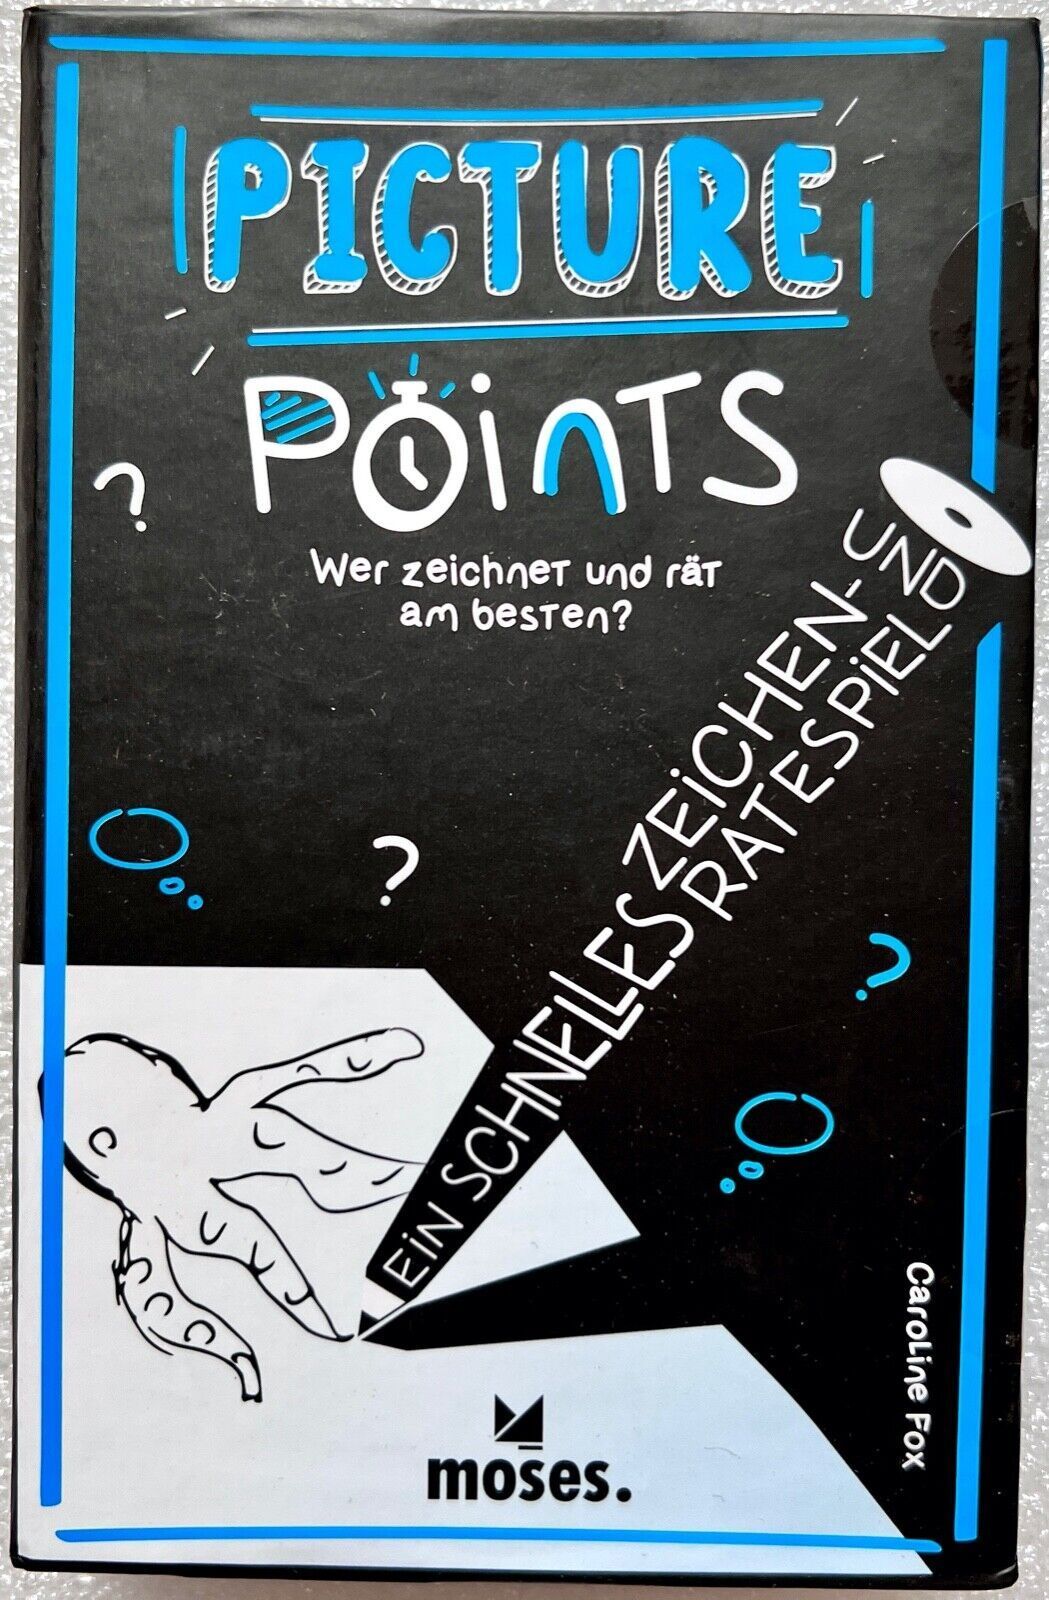 PICTURE
POINTS
Wer zeichnet und rät
am besten?
EIN SCHNELLES ZEICHEN- UND
RATESPIEL
Caroline Fox
moses.